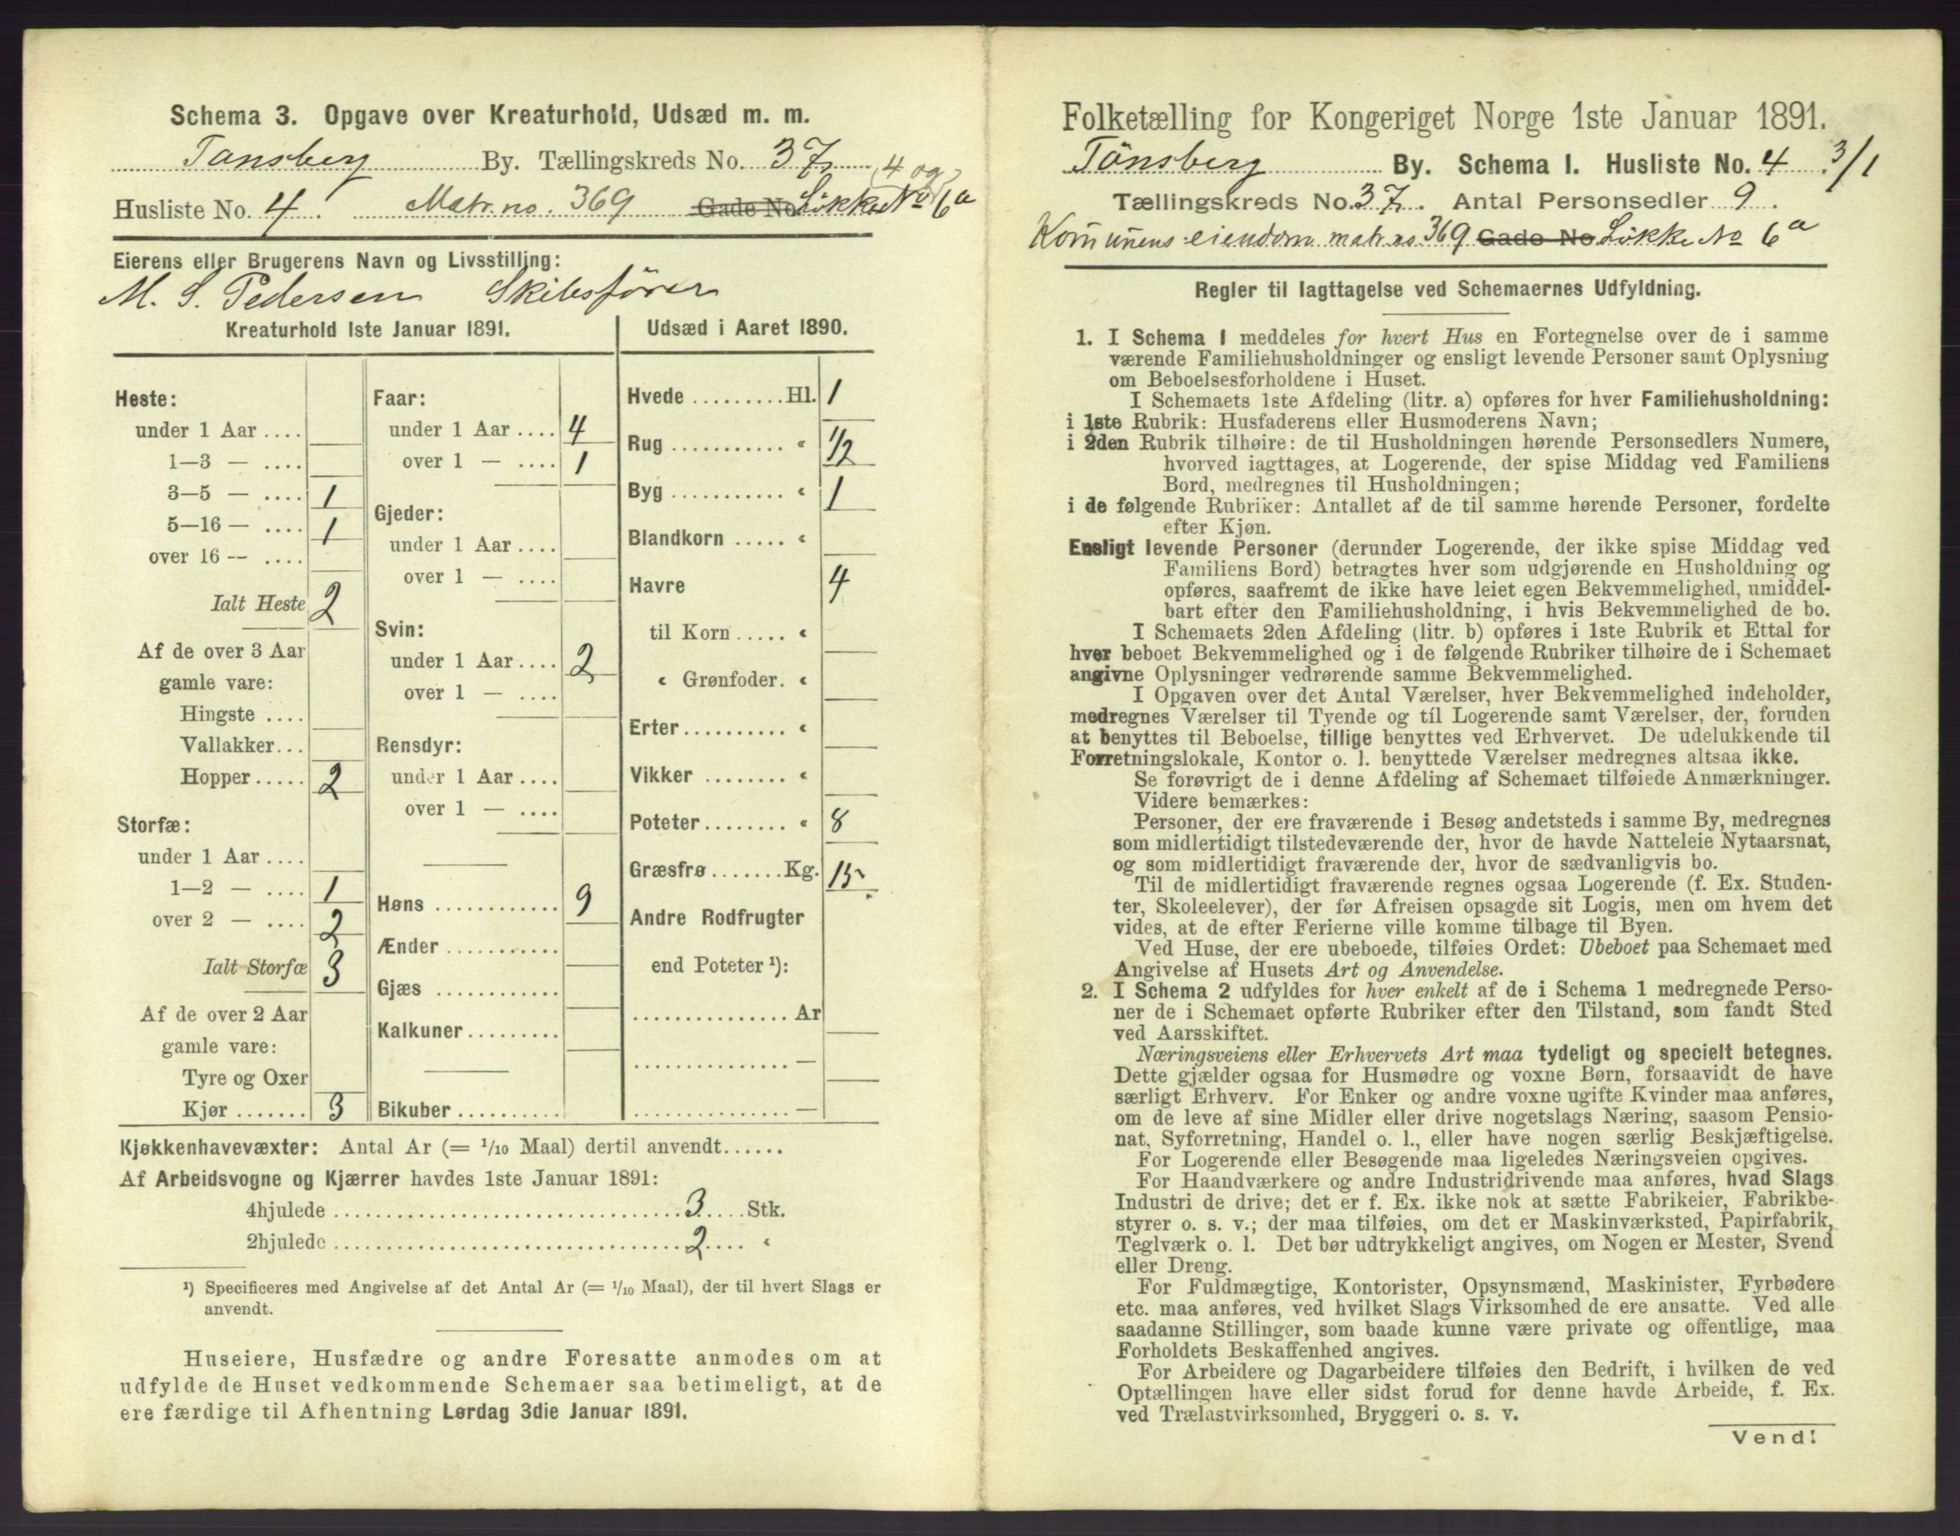 Schema 3. Opgave over Kreaturhold, Udsæd m. m.
Tønsberg By. Tællingskreds No. 37.
Husliste No. 4. Matr. no. 369 Gade No. Løkke No (4 og) 6a
Eierens eller Brugerens Navn og Livsstilling:
M. S. Pedersen Skibsfører
Kreaturhold 1ste Januar 1891.
Heste:
under 1 Aar ....
1—3 — ....
3—5 — .... 1
5—16 — .... 1
over 16 — ....
Ialt Heste 2
Af de over 3 Aar
gamle vare:
Hingste ....
Vallakker...
Hopper ..... 2
Storfæ:
under 1 Aar ....
1—2 — .... 1
over 2 — .... 2
Ialt Storfæ 3
Af de over 2 Aar
gamle vare:
Tyre og Oxer
Kjør ....... 3
Faar:
under 1 Aar .... 4
over 1 — .... 1
Gjeder:
under 1 Aar ....
over 1 — ....
Svin:
under 1 Aar .... 2
over 1 — ....
Rensdyr:
under 1 Aar ....
over 1 — ....
Høns ............ 9
Ænder ...........
Gjæs ............
Kalkuner.........
Bikuber..........
Udsæd i Aaret 1890.
Hvede .........Hl. 1
Rug ........... « 1/2
Byg ........... « 1
Blandkorn ..... « 
Havre 4
til Korn ..... «
« Grønfoder. «
Erter.......... «
Vikker ........ «
Poteter........ « 8
Græsfrø.......Kg. 15
Andre Rodfrugter
end Poteter ¹):
............... Ar
............... —
............... —
Kjøkkenhavevæxter: Antal Ar (= 1/10 Maal) dertil anvendt......
Af Arbeidsvogne og Kjærrer havdes 1ste Januar 1891:
4hjulede ................................. 3 .... Stk.
2hjulede ................................. 2 .... «
¹) Specificeres med Angivelse af det Antal Ar (= 1/10 Maal), der til hvert Slags er
anvendt.
Huseiere, Husfædre og andre Foresatte anmodes om at
udfylde de Huset vedkommende Schemaer saa betimeligt, at de
ere færdige til Afhentning Lørdag 3die Januar 1891.
Folketælling for Kongeriget Norge 1ste Januar 1891.
Tönsberg By. Schema I. Husliste No. 4 . 3/1
Tællingskreds No. 37. Antal Personsedler 9.
Komunens eiendom matr. no 369 Gade No Løkke No 6a
Regler til Iagttagelse ved Schemaernes Udfyldning.
1. I Schema I meddeles for hvert Hus en Fortegnelse over de i samme
værende Familiehusholdninger og ensligt levende Personer samt Oplysning
om Beboelsesforholdene i Huset.
I Schemaets 1ste Afdeling (litr. a) opføres for hver Familiehusholdning:
i 1ste Rubrik: Husfaderens eller Husmoderens Navn;
i 2den Rubrik tilhøire: de til Husholdningen hørende Personsedlers Numere,
hvorved iagttages, at Logerende, der spise Middag ved Familiens
Bord, medregnes til Husholdningen;
i de følgende Rubriker: Antallet af de til samme hørende Personer, fordelte
efter Kjøn.
Ensligt levende Personer (derunder Logerende, der ikke spise Middag ved
Familiens Bord) betragtes hver som udgjørende en Husholdning og
opføres, saafremt de ikke have leiet egen Bekvemmelighed, umiddel-
bart efter den Familiehusholdning, i hvis Bekvemmelighed de bo.
I Schemaets 2den Afdeling (litr. b) opføres i 1ste Rubrik et Ettal for
hver beboet Bekvemmelighed og i de følgende Rubriker tilhøire de i Schemaet
angivne Oplysninger vedrørende samme Bekvemmelighed.
I Opgaven over det Antal Værelser, hver Bekvemmelighed indeholder,
medregnes Værelser til Tyende og til Logerende samt Værelser, der, foruden
at benyttes til Beboelse, tillige benyttes ved Erhvervet. De udelukkende til
Forretningslokale, Kontor o. l. benyttede Værelser medregnes altsaa ikke.
Se forøvrigt de i denne Afdeling af Schemaet tilføiede Anmærkninger.
Videre bemærkes:
Personer, der ere fraværende i Besøg andetsteds i samme By, medregnes
som midlertidigt tilstedeværende der, hvor de havde Natteleie Nytaarsnat,
og som midlertidigt fraværende der, hvor de sædvanligvis bo.
Til de midlertidigt fraværende regnes ogsaa Logerende (f. Ex. Studen-
ter, Skoleelever), der før Afreisen opsagde sit Logis, men om hvem det
vides, at de efter Ferierne ville komme tilbage til Byen.
Ved Huse, der ere ubeboede, tilføies Ordet: Ubeboet paa Schemaet med
Angivelse af Husets Art og Anvendelse.
2. I Schema 2 udfyldes for hver enkelt af de i Schema 1 medregnede Perso-
ner de i Schemaet opførte Rubriker efter den Tilstand, som fandt Sted
ved Aarsskiftet.
Næringsveiens eller Erhvervets Art maa tydeligt og specielt betegnes.
Dette gjælder ogsaa for Husmødre og voxne Børn, forsaavidt de have
særligt Erhverv. For Enker og andre voxne ugifte Kvinder maa anføres,
om de leve af sine Midler eller drive nogetslags Næring, saasom Pensio-
nat, Syforretning, Handel o. l., eller have nogen særlig Beskjæftigelse.
For Logerende eller Besøgende maa ligeledes Næringsveien opgives.
For Haandværkere og andre Industridrivende maa anføres, hvad Slags
Industri de drive; det er f. Ex. ikke nok at sætte Fabrikeier, Fabrikbe-
styrer o. s. v.; der maa tilføies, om det er Maskinværksted, Papirfabrik,
Teglværk o. l. Det bør udtrykkeligt angives, om Nogen er Mester, Svend
eller Dreng.
For Fuldmægtige, Kontorister, Opsynsmænd, Maskinister, Fyrbødere
etc. maa anføres, ved hvilket Slags Virksomhed de ere ansatte. Ved alle
saadanne Stillinger, som baade kunne være private og offentlige, maa
Forholdets Beskaffenhed angives.
For Arbeidere og Dagarbeidere tilføies den Bedrift, i hvilken de ved
Optællingen have eller sidst forud for denne havde Arbeide, f. Ex.
ved Trælastvirksomhed, Bryggeri o. s. v.
Vend!